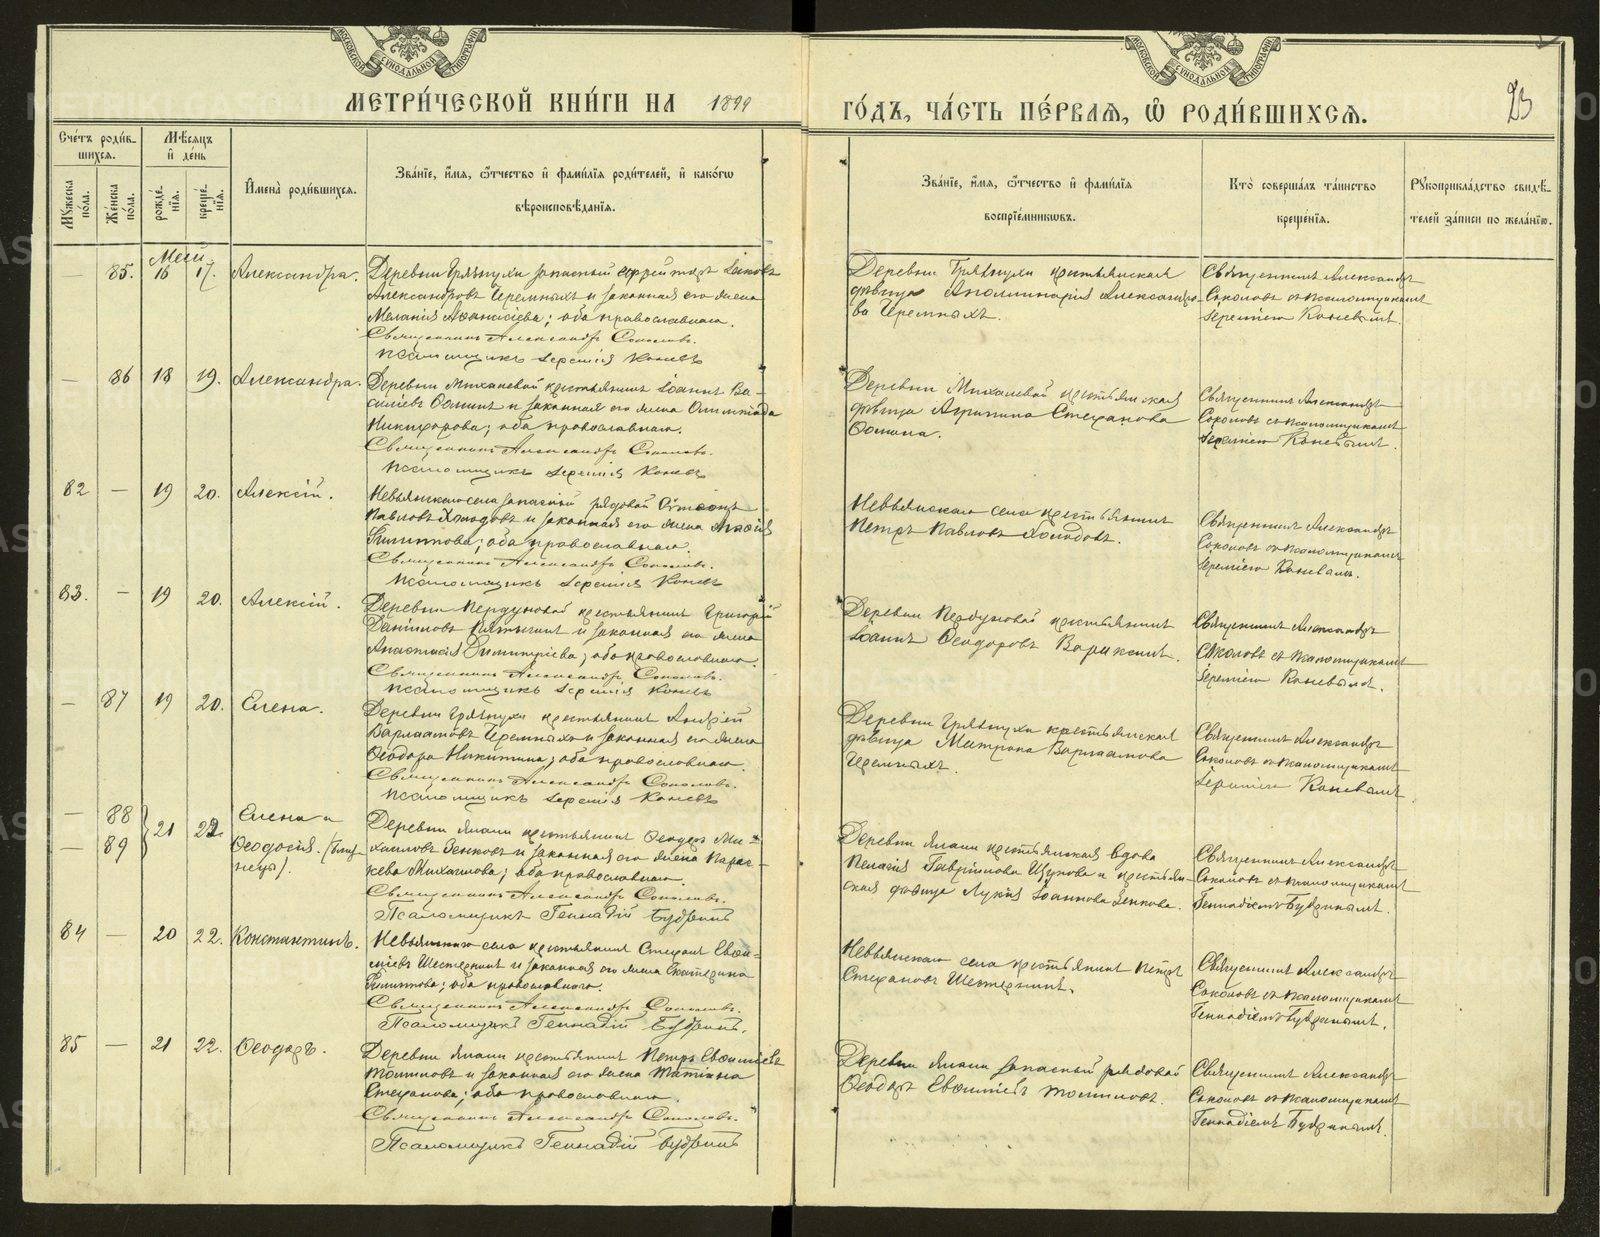 МЕТРИ́ЧЕСКОЙ КНИ́ГИ НА 1899 ГО́ДЪ, ЧА́СТЬ ПЕ́РВАЯ, Ѽ РОДИ́ВШИХСЯ.
23
Сче́тъ роди́в-
шихся.
Мѣсяцъ
и де́нь
Мꙋ́жеска по́ла.
Же́нска по́ла.
рожде́-
нїя.
креще́-
нїя.
И҆мена̀ роди́вшихся.
Зва́нїе, и҆́мя, ѻ҆́тчество и҆ фами́лїя роди́телей, и҆ како́гѡ
вѣроисповѣ́данїя.
Зва́нїе, и҆́мя, ѻ҆́тчество и҆ фами́лїя
воспрїе́мникѡвъ.
Кто̀ соверша́лъ та́инство
креще́нїя.
Рꙋкоприкла́дство свидѣ́-
телей за́писи по жела́нїю.
Маій
— 85. 16 17. Александра.
Деревни Грязнухи запасный ефрейторъ Іаковъ
Александровъ Черемныхъ и законная его жена
Меланія Аѳанасіева; оба православнаго.
Священникъ Александръ Соколовъ.
Псаломщикъ Іеремія Коневъ
Деревни Грязнухи крестьянская
дѣвица Аполлинарія Александро-
ва Черемныхъ.
Священникъ Александръ
Соколовъ съ псаломщикомъ
Іереміею Коневымъ.
— 86 18 19. Александра.
Деревни Михалевой крестьянинъ Іоаннъ Ва-
силіевъ Осминъ и законная его жена Олимпіада
Никифорова; оба православнаго.
Священникъ Александръ Соколовъ.
Псаломщикъ Іеремія Коневъ
Деревни Михалевой крестьянская
дѣвица Агрипина Стефанова
Осмина.
Священникъ Александръ
Соколовъ съ псаломщикомъ
Іереміею Коневымъ.
82 — 19 20. Алексій.
Невьянскаго села запасный рядовой
Павловъ Холодовъ и законная его жена
Филиппова; оба православнаго.
Священникъ Александръ Соколовъ.
Псаломщикъ Іеремія Коневъ
Невьянскаго села крестьянинъ
Петръ Павловъ Холодовъ.
Священникъ Александръ
Соколовъ съ псаломщикомъ
Іереміею Коневымъ.
83. — 19 20. Алексій.
Деревни Пердуновой крестьянинъ Григорій
Даніиловъ и законная его жена
Анастасія Димитріева; оба православнаго.
Священникъ Александръ Соколовъ.
Псаломщикъ Іеремія Коневъ
Деревни Пердуновой крестьянинъ
Іоаннъ Ѳеодоровъ
Священникъ Александръ
Соколовъ съ псаломщикомъ
Іереміею Коневымъ.
— 87 19 20. Елена.
Деревни Грязнухи крестьянинъ Андрей
Варлаамовъ Черемныхъ и законная его жена
Ѳеодора Никитина; оба православнаго.
Священникъ Александръ Соколовъ.
Псаломщикъ Іеремія Коневъ
Деревни Грязнухи крестьянская
дѣвица Матрона Варлаамова
Черемныхъ.
Священникъ Александръ
Соколовъ съ псаломщикомъ
Іереміею Коневымъ.
— 88 21 22. Елена и
— 89 Ѳеодосія. (близ-
нецы).
Деревни Ямаши крестьянинъ Ѳеодоръ Ми-
хаиловъ Зенковъ и законная его жена Парас-
кева Михаилова; оба православнаго.
Священникъ Александръ Соколовъ.
Псаломщикъ Геннадій Будринъ
Деревни Ямаши крестьянская вдова
Пелагія Гавріилова и крестьян-
ская дѣвица Лукія Іоаннова Зенкова.
Священникъ Александръ
Соколовъ съ псаломщикомъ
Геннадіемъ Будринымъ.
84 — 20 22. Константинъ.
Невьянскаго села крестьянинъ Стефанъ Евѳи-
міевъ Шестернинъ и законная его жена Екатерина
Филиппова; оба православнаго.
Священникъ Александръ Соколовъ.
Псаломщикъ Геннадій Будринъ.
Невьянскаго села крестьянинъ Петръ
Стефановъ Шестернинъ.
Священникъ Александръ
Соколовъ съ псаломщикомъ
Геннадіемъ Будринымъ.
85 — 21 22. Ѳеодоръ.
Деревни Ямаши крестьянинъ Петръ Евѳиміевъ
Томиловъ и законная его жена Татіана
Стефанова; оба православнаго.
Священникъ Александръ Соколовъ.
Псаломщикъ Геннадій Будринъ
Деревни Ямаши запасный рядовой
Ѳеодоръ Евѳиміевъ Томиловъ.
Священникъ Александръ
Соколовъ съ псаломщикомъ
Геннадіемъ Будринымъ.